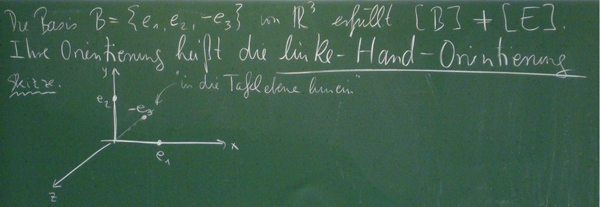 Die Basis B = {e₁, e₂, -e₃} von ℝ³ erfüllt [B] ≠ [E].
Ihre Orientierung heißt die linke-Hand-Orientierung
Skizze.
y
"in die Tafelebene hinein"
e₂
-e₃
e₁
x
z